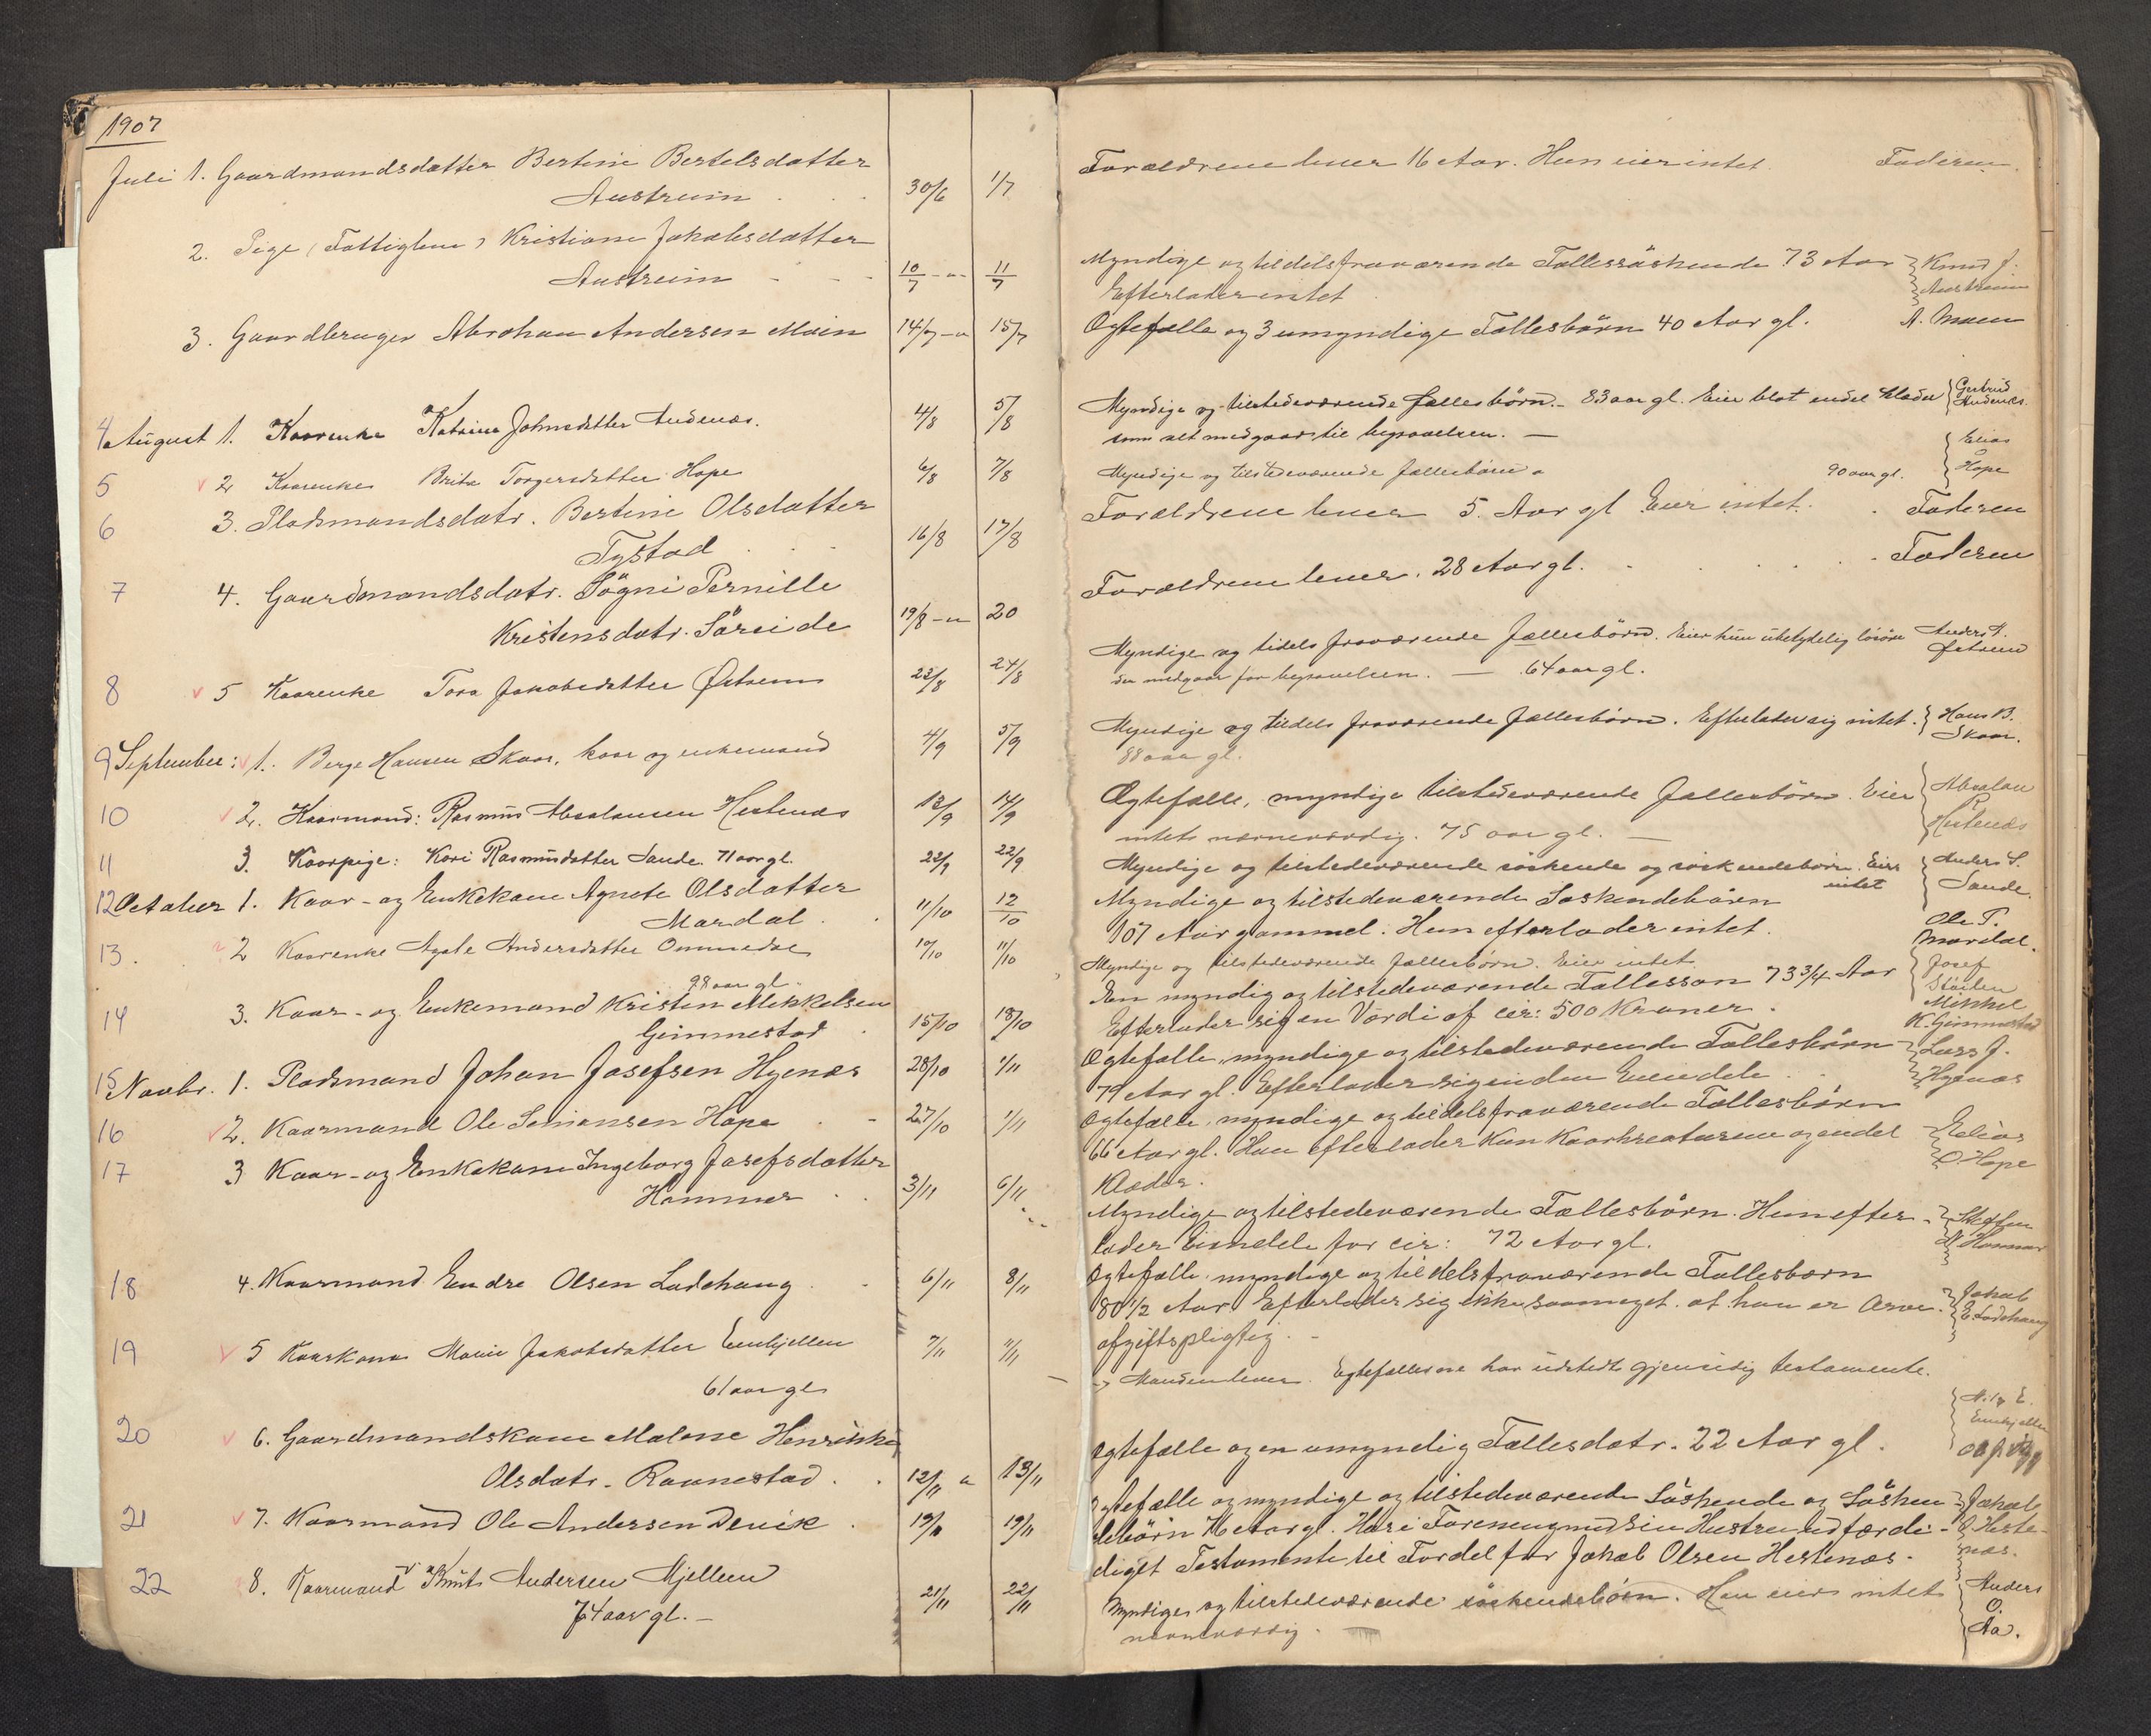 1907
Juli 1. Gaardmandsdatter Bertine Bertelsdatter
Austreim . . . 30/6 1/7
2. Pige (Fattiglem) Kristiane Jakobsdatter
Austreim - - - 10/7 - " - 11/7
3. Gaardbruger Abraham Andersen Moin 14/7 - " 15/7
4 August 1. Kaarenke Katrine Johnsdatter Andenæs. 4/8 5/8
5 2 Kaarenke Brita Torgersdatter Hope 6/8 7/8
6 3. Pladsmandsdatr. Bertine Olsdatter
Tystad . . . 16/8 17/8
7 4. Gaardmandsdatr. Sögni Pernille
Kristensdatr. Söreide 19/8 - " 20
8 5 Kaarenke Tora Jakobsdatter Østrem 23/8 24/8
9 September: 1. Berge Hansen Skaar, kaar og enkemand 4/9 5/9
10 2. Kaarmand: Rasmus Absalonsen Hestenæs 13/9 14/9
11 3. Kaarpige: Kari Rasmusdatter Sande. 71 aar gl. 22/9 22/9
12 October 1. Kaar- og Enkekone Agnete Olsdatter
Mardal . . 11/10 12/10
13. 2 Kaarenke Agate Andersdatter Ommedal 10/10 11/10
98 aar gl.
14 3. Kaar- og Enkemand Kristen Mikkelsen
Gimmestad . 15/10 18/10
15 Novbr. 1. Pladsmand Johan Josefsen Hyenæs 28/10 1/11
16 2. Kaarmand Ole Simonsen Hope . - 27/10 1/11
17 3 Kaar- og Enkekone Ingeborg Josefsdatter
Hammer . . 3/11 6/11
18 4. Kaarmand Endre Olsen Ladehaug . - 6/11 8/11
19 5 Kaarkone Marie Jakobsdatter Emhjellen 7/11 11/11
61 aar gl
20 6. Gaardmandskone Malene Henrikke
Olsdatr. Ravnestad . . 12/11 " 13/11
21 7. Kaarmand Ole Andersen Devik . 19/11 19/11
22 8. Kaarmand Knut Andersen Mjellem 21/11 22/11
74 aar gl. -
Forældrene lever 16 Aar. Hun eier intet. Faderen.
Myndige og tildels fraværende Fællessöskende 73 Aar Knud J.
Efterlader intet . Austreim
Ægtefælle og 3 umyndige Fællesbörn 40 Aar gl. A. Moen
Myndige og tilstedeværende fællesbörn. - 83 aar gl. Eier blot endel klæder Gertrud Andenæs.
som alt medgaar til begravelsen. —
Myndige og tilstedeværende fællesbörn. 90 aar gl. Elias Hope
Forældrene lever 5 Aar gl Eier intet. . Faderen
Forældrene lever. 28 Aar gl. . . . . . Faderen
Myndige og tildels fraværende fællesbörn. Eier kun ubetydelig lösöre Anders A.
der medgaar for begravelsen. — 64 aar gl. Østrem
Myndige og tildels fraværende fællesbörn. Efterlader sig intet. Hans B.
88 aar gl. Skaar.
Ægtefælle, myndige tilstedeværende fællesbörn. Eier Absalon
intet nævneværdig. 75 aar gl. — R. Hestenæs
Myndige og tilstedeværende söskende og söskendebörn. Eier Anders S.
intet Sande.
Myndige og tilstedeværende Söskendebörn
107 Aar gammel. Hun efterlader intet. Ole T. Mardal.
Myndige og tilstedeværende fællesbörn. Eier intet Josef
En myndig og tilstedeværende Fællessön 73 3/4 Aar
Efterlader sig en Værdi af cir: 500 Kroner. Mikkel K. Gimmestad
Ægtefælle, myndige og tilstedeværende Fællesbörn Lars J.
79 Aar gl. Efterlader sig enden Eiendele . . Hyenæs
Ægtefælle, myndige og tildels fraværende Fællesbörn
66 Aar gl. Han efterlader kun Kaarkreaturene og endel Elias
Klæder. O. Hope
Myndige og tilstedeværende Fællesbörn. Hun efter-
lader Eiendele for cir: 72 Aar gl. Hammer
Ægtefælle, myndige og tildels fraværende Fællesbörn
80 1/2 Aar. Efterlader sig ikke saameget at han er Arve- Jakob
afgiftspligtig. - E. Ladehaug
Manden lever. Egtefællerne har udstedt gjensidig testamente.
Emhjellen
Ægtefælle og en umyndig Fællesdatr. 22 Aar gl.
Ægtefælle og myndige og tilstedeværende Söskende og Sösken- Jakob
debörn 76 Aar gl. Har i Forening med sin Hustru udfærdi- O. Heste-
diget Testamente til Fordel for Jakob Olsen Hestenæs. næs.
Myndige og tilstedeværende söskendebörn. Han eier intet Anders
nævneværdig. O. Aa.